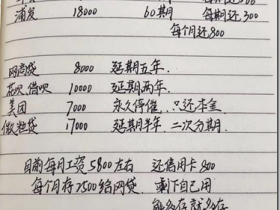 浦发 18000 60期 每期还300
每个月还800
网商贷 8000 延期五年.
花呗、借呗 10000 延期两年.
美团 7000 永久停催,只还本金
微粒贷 17000 延期半年.二次分期.
目前每月工资5800左右 还信用卡800
每个月存2500给网贷. 剩下自己用